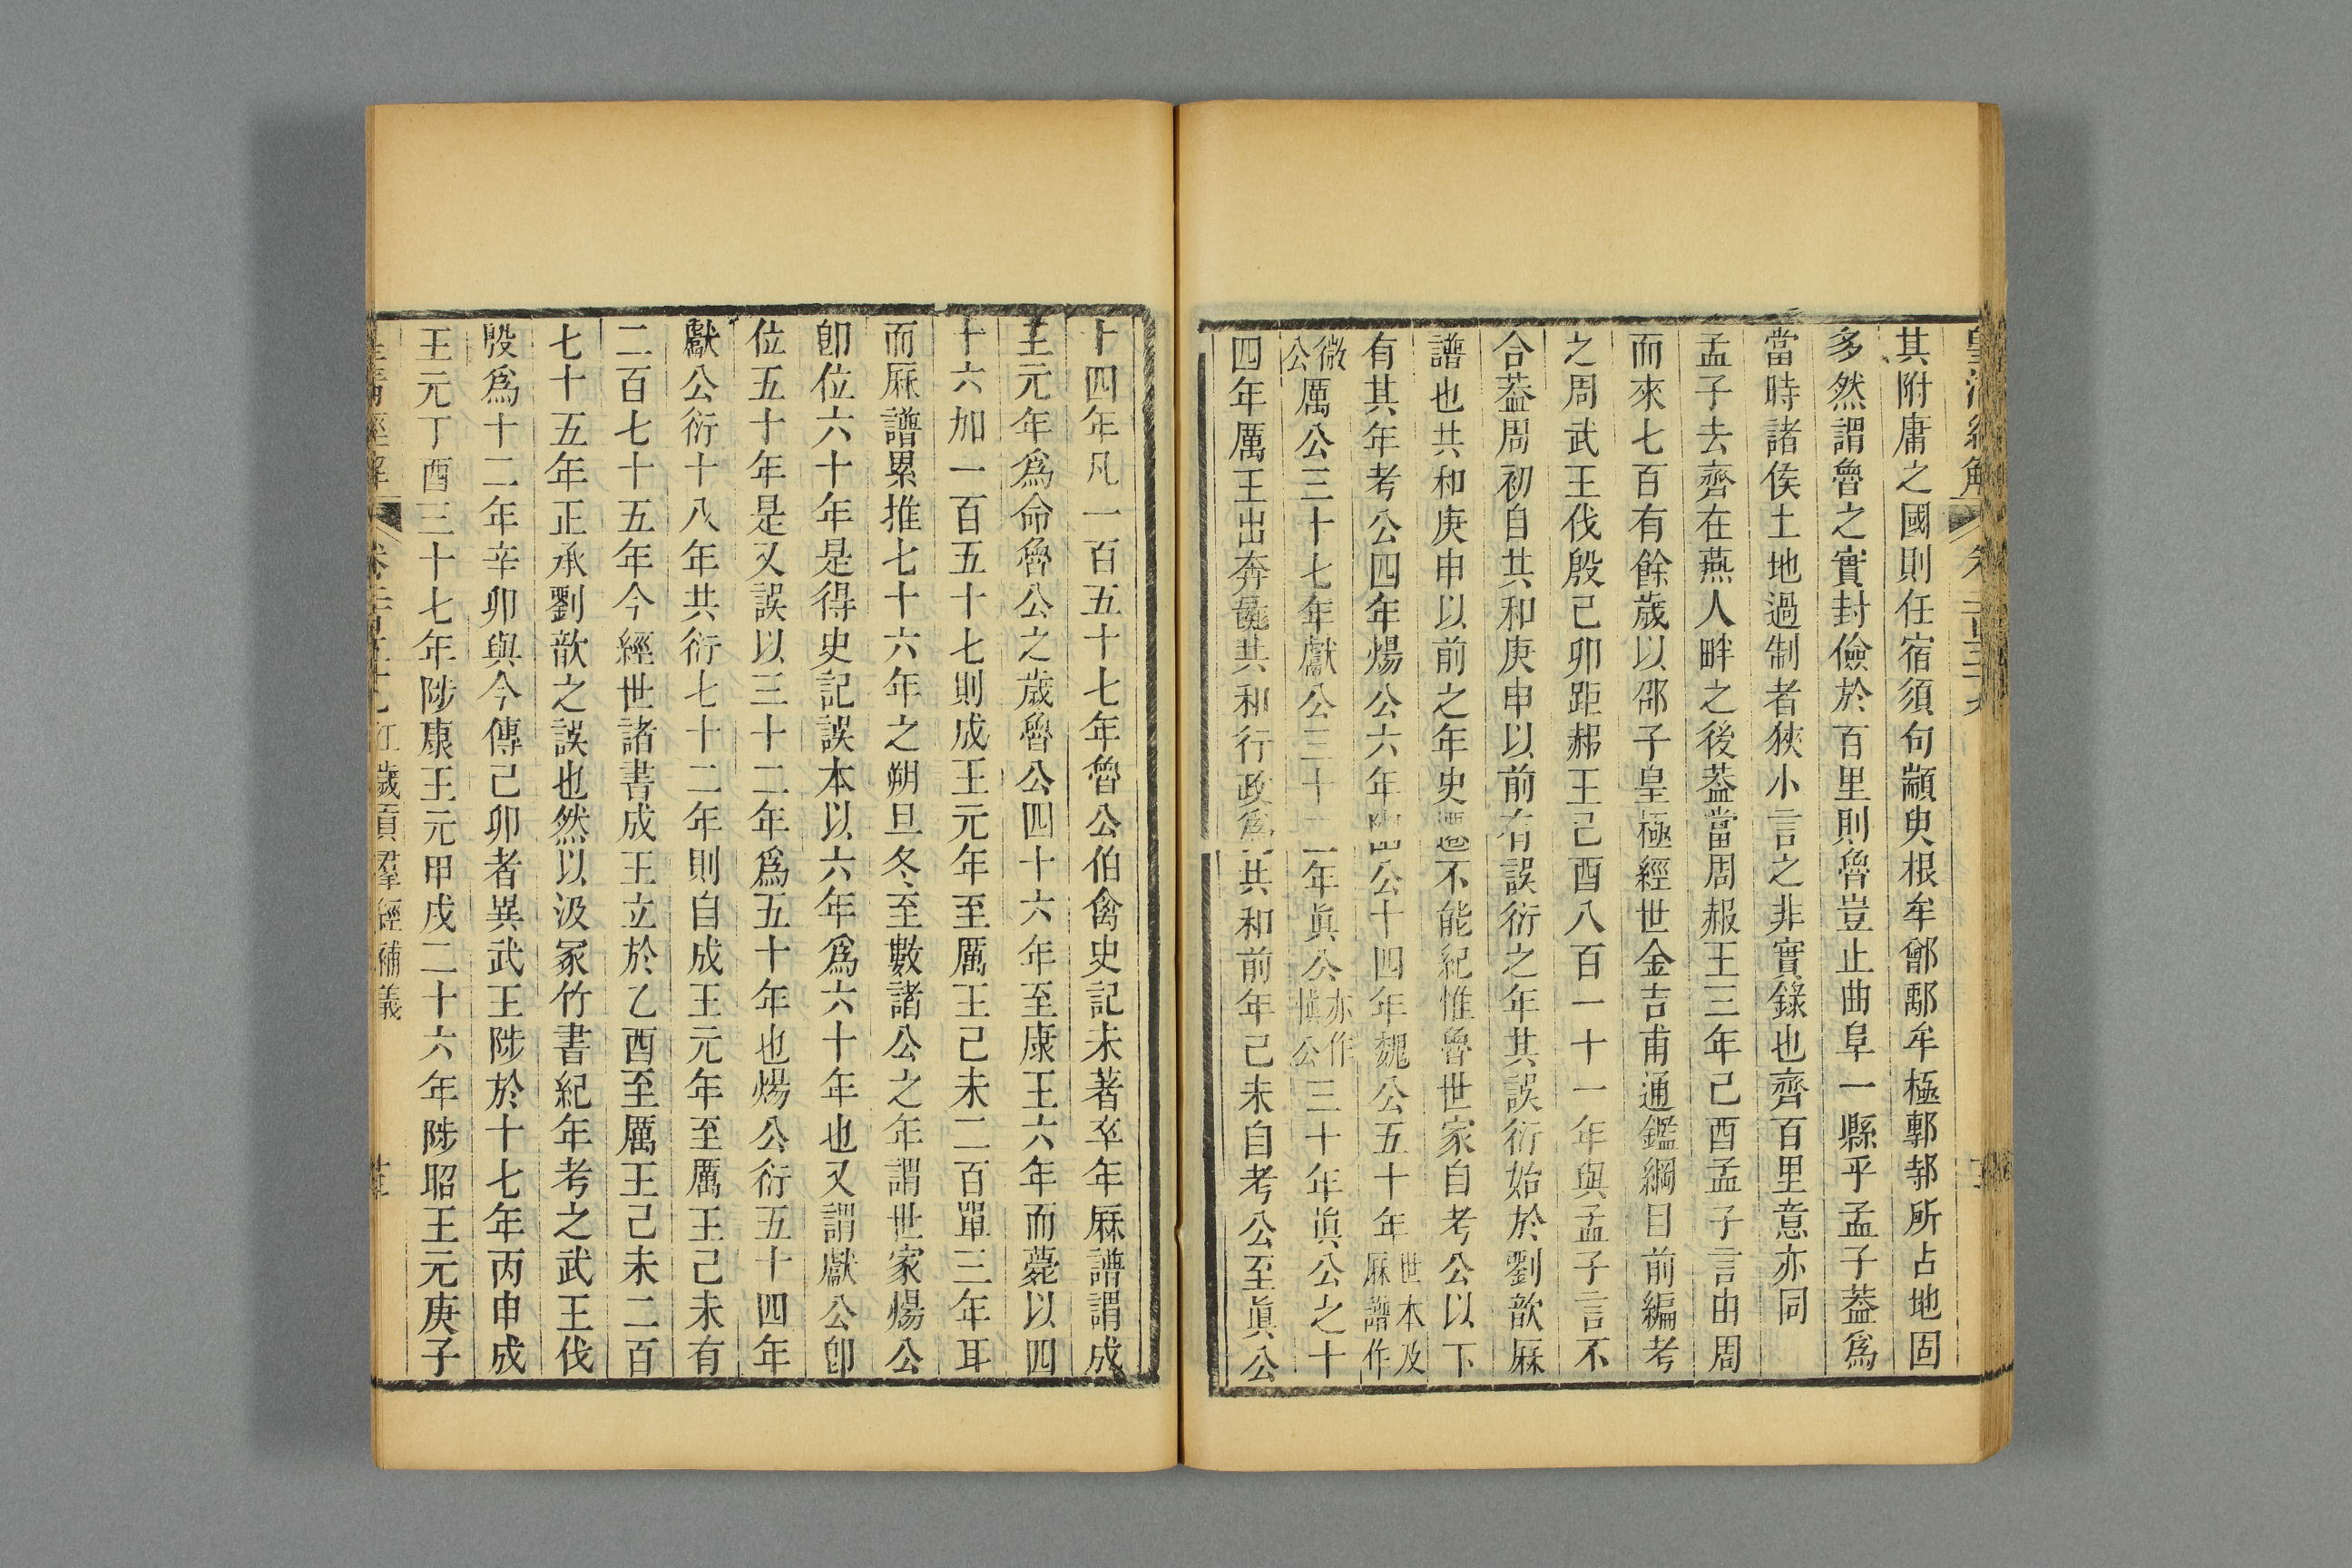 皇清經解
其附庸之國則任宿須句顓臾根牟鄫鄅牟極鄟邿所占地固
多然謂魯之實封儉於百里則魯豈止曲阜一縣乎孟子葢爲
當時諸侯土地過制者狹小言之非實錄也齊百里意亦同
孟子去齊在燕人畔之後葢當周赧王三年己酉孟子言由周
而來七百有餘歲以邵子皇極經世金吉甫通鑑綱目前編考
之周武王伐殷己卯距赧王己酉八百一十一年與孟子言不
合葢周初自共和庚申以前有誤衍之年其誤衍始於劉歆厤
譜也共和庚申以前之年史遷不能紀惟魯世家自考公以下
有其年考公四年煬公六年幽公十四年魏公五十年世本及厤譜作
微公厲公三十七年獻公三十二年眞公亦作愼公三十年眞公之十
四年厲王出奔彘共和行政爲共和前年己未自考公至眞公
十四年凡一百五十七年魯公伯禽史記未著卒年厤譜謂成
王元年爲命魯公之歲魯公四十六年至康王六年而薨以四
十六加一百五十七則成王元年至厲王己未二百單三年耳
而厤譜累推七十六年之朔旦冬至數諸公之年謂世家煬公
卽位六十年是得史記誤本以六年爲六十年也又謂獻公卽
位五十年是又誤以三十二年爲五十年也煬公衍五十四年
獻公衍十八年共衍七十二年則自成王元年至厲王己未有
二百七十五年今經世諸書成王立於乙酉至厲王己未二百
七十五年正承劉歆之誤也然以汲冢竹書紀年考之武王伐
殷爲十二年辛卯與今傳己卯者異武王陟於十七年丙申成
王元丁酉三十七年陟康王元甲戌二十六年陟昭王元庚子
江歲貢羣經補義